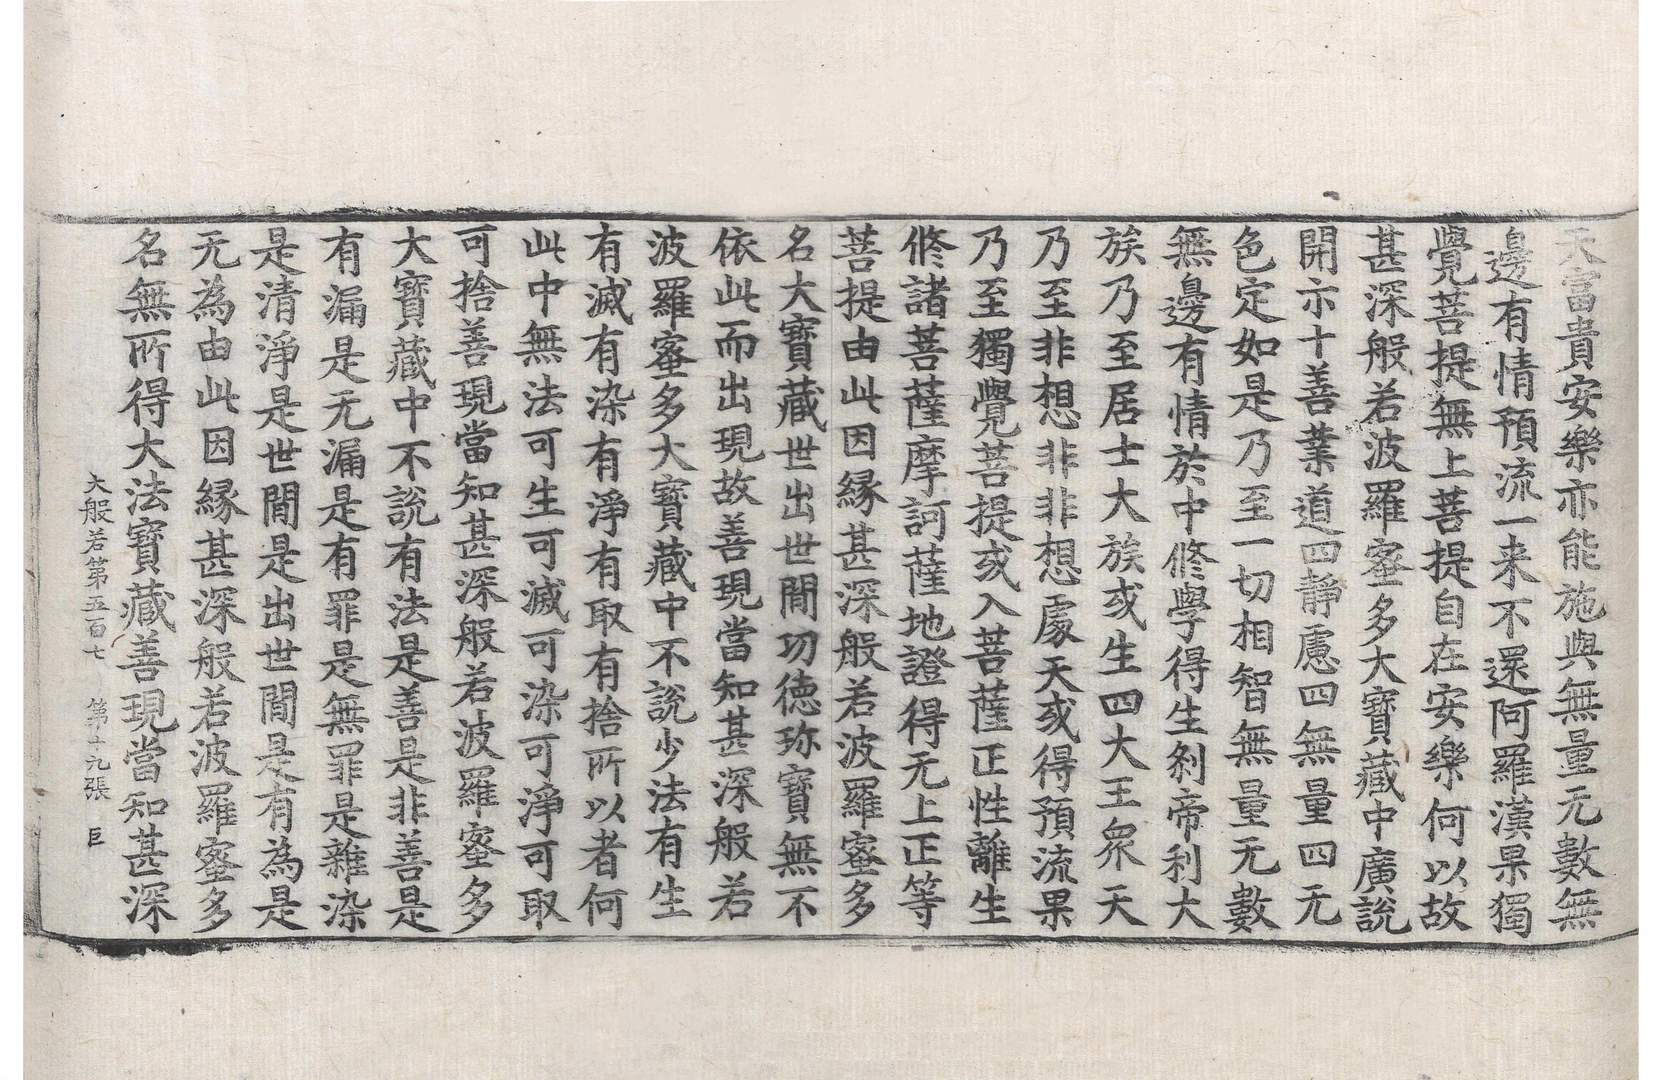 天富貴安樂亦能施與無量无數無
邊有情預流一来不還阿羅漢果獨
覺菩提無上菩提自在安樂何以故
甚深般若波羅蜜多大寶藏中廣說
開示十善業道四靜慮四無量四无
色定如是乃至一切相智無量无數
無邊有情於中修學得生剎帝利大
族乃至居士大族或生四大王衆天
乃至非想非非想處天或得預流果
乃至獨覺菩提或入菩薩正性離生
修諸菩薩摩訶薩地證得无上正等
菩提由此因緣甚深般若波羅蜜多
名大寶藏世出世間功德珎寶無不
依此而出現故善現當知甚深般若
波羅蜜多大寶藏中不說少法有生
有滅有染有淨有取有捨所以者何
此中無法可生可滅可染可淨可取
可捨善現當知甚深般若波羅蜜多
大寶藏中不說有法是善是非善是
有漏是无漏是有罪是無罪是雜染
是清淨是世間是出世間是有為是
无為由此因緣甚深般若波羅蜜多
名無所得大法寶藏善現當知甚深
大般若第五百七　第十九張　巨